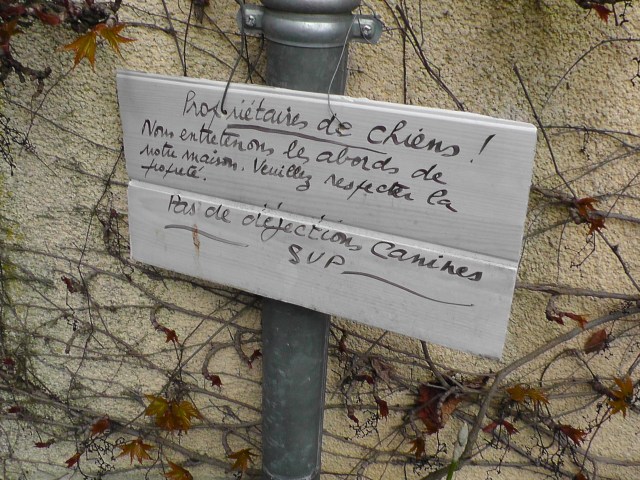 Propriétaires de chiens !
Nous entretenons les abords de
notre maison. Veuillez respecter la
propreté.
Pas de déjections canines
SVP